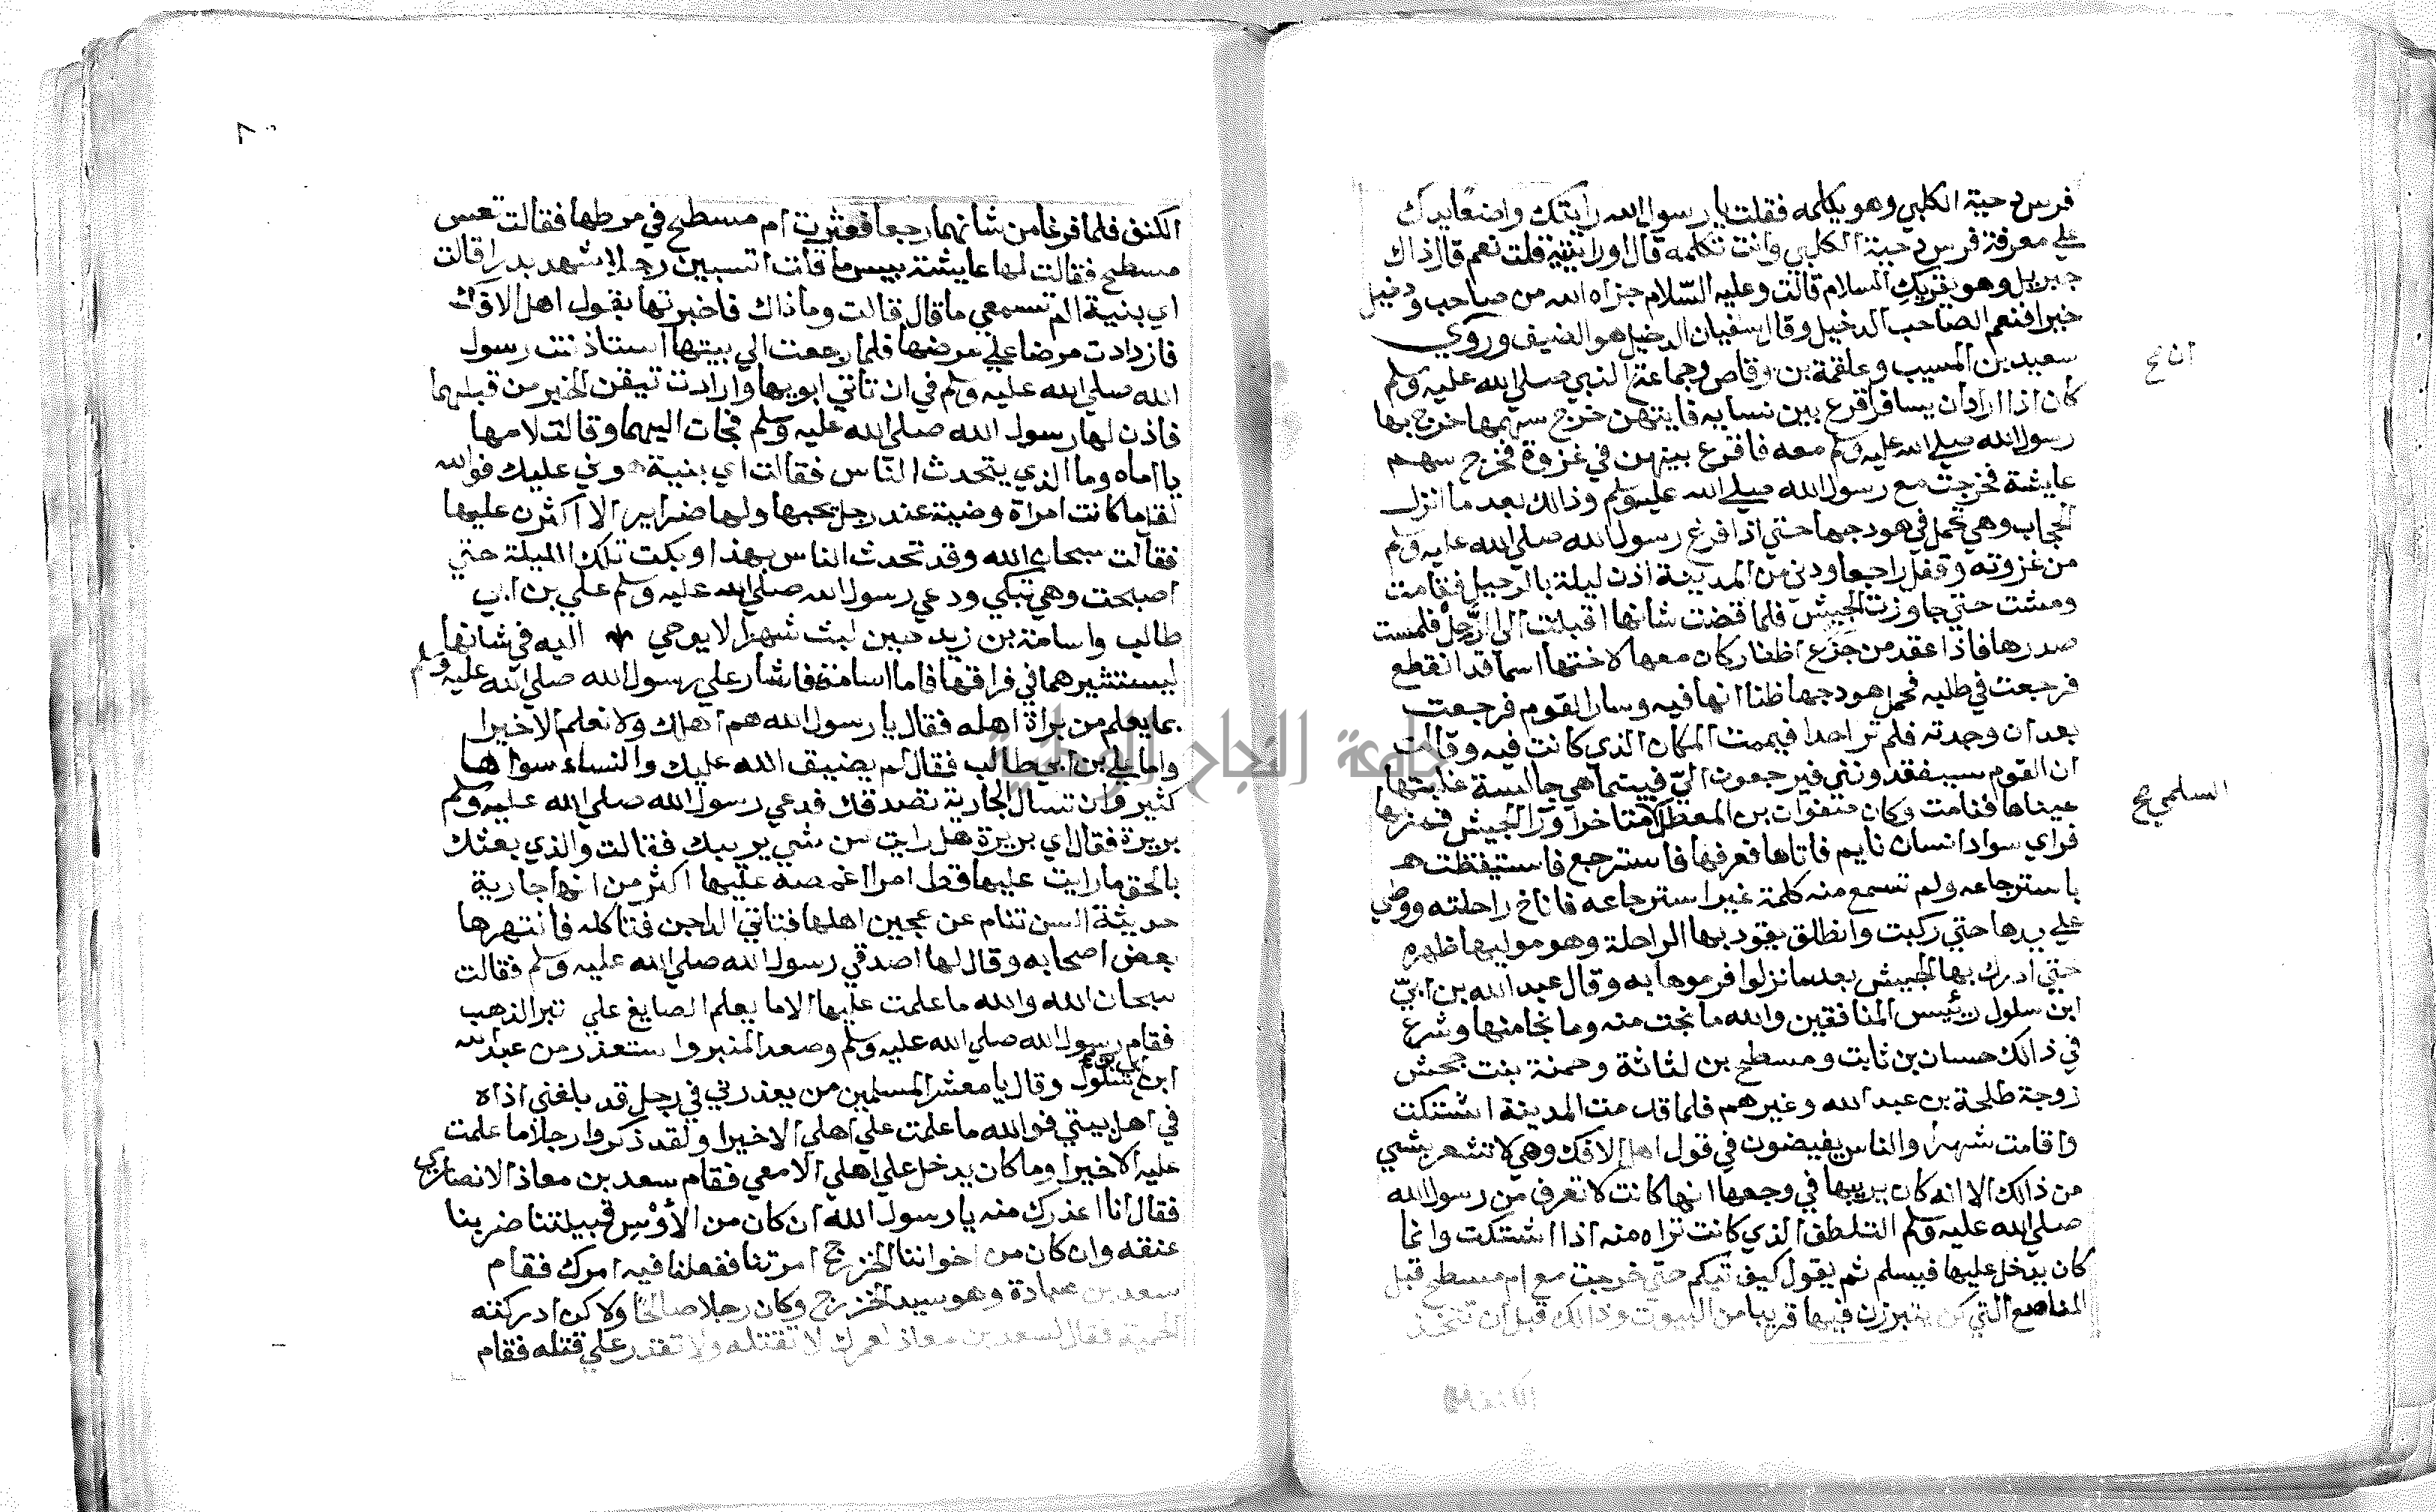 فرس دحية الكلبي وهو يكلمه فقلت يا رسول الله رايتك واضعا يدك
علي معرفة فرس دحية الكلبي وانت تكلمه قال اورايتيه قلت نعم قال ذاك
جبريل وهو يقريك السلام قالت وعليه السّلام جزاه الله من صاحب ودخيل
خيرا فنعم الصاحب الدخيل وقال سفيان الدخيل هو الضيف وروي
سعيد بن المسيب وعلقمة بن وقاص وجماعة النبي صلي الله عليه وسلم
ان ع
كان اذا اراد ان يسافر اقرع بين نسايه فايتهن خرج سهمها خرج بها
رسول الله صلي الله عليه وسلم معه فاقرع بينهن في غزوة فخرج سهم
عايشة فخرجت مع رسول الله صلي الله عليه وسلم وذالك بعد ما انزل
الحجاب وهي تحمل في هودجها حتي اذا فرغ رسول الله صلي الله عليه وسلم
من غزوته وقفل راجعا ودني من المدينة اذن ليلة بالرحيل فقامت
ومشت حتي جاوزت الجيش فلما قضت شانها اقبلت الي الرَّحل فلمست
صدرها فاذا عقد من جزع اظفار كان معها لاختها اسما قد انقطع
فرجعت في طلبه فحمل هودجها ظنا انها فيه وسار القوم فرجعت
بعد ان وجدته فلم تر احدا فيممت المكان الذي كانت فيه وقالت
ان القوم سيفقدونني فيرجعون اليّ فبينما هي جالسة غلبتها
عيناها فنامت وكان صفوان بن المعطل متاخرا ورا الجيش فمر بها
السلمي صح
فراي سواد انسان نايم فاتاها فعرفها فاسترجع فاستيقظت
باسترجاعه ولم تسمع منه كلمة غير استرجاعه فاناخ راحلته ووطي
علي يدها حتي ركبت وانطلق يقود بها الراحلة وهو موليها ظهره
حتي ادرك بها الجيش بعد ما نزلوا فرموها به وقال عبد الله بن ابيّ
ابن سلول رئيس المنافقين والله ما نجت منه وما نجا منها وشرع
في ذالك حسان بن ثابت ومسطح بن اثاثة وحمنة بنت جحش
زوجة طلحة بن عبد الله وغيرهم فلما قدمت المدينة اشتكت
واقامت شهرا والناس يفيضون في قول اهل الافك وهي لا تشعر بشي
من ذالك الا انه كان يريبها في وجعها انها كانت لا تعرف من رسول الله
صلي الله عليه وسلم التلطف الذي كانت تراه منه اذا اشتكت وانما
كان يدخل عليها فيسلم ثم يقول كيف تيكم حتي خرجت مع ام مسطح قبل
المناصع التي كن يتبرزن فيها قريبا من البيوت وذالك قبل ان تتخذ
الكنف
الكنف فلما فرغا من شانهما رجعا فعثرت ام مسطح في مرطها فقالت تعس
مسطح فقالت لها عايشة بيس ما قلت اتسبين رجلا شهد بدرا قالت
اي بنية الم تسمعي ما قال قالت وما ذاك فاخبرتها بقول اهل الافك
فازدادت مرضا علي مرضها فلما رجعت الي بيتها استاذنت رسول
الله صلي الله عليه وسلم في ان تاتي ابويها وارادت تيقن الخبر من قبلهما
فاذن لها رسول الله صلي الله عليه وسلم فجات اليهما وقالت لامها
يا اماه وما الذي يتحدث الناس فقالت اي بنية هوني عليك فوالله
لقل ما كانت امراة وضية عند رجل يحبها ولها ضراير الا اكثرن عليها
فقالت سبحان الله وقد تحدث الناس بهذا وبكت تلك الليلة حتي
اصبحت وهي تبكي ودعي رسول الله صلي الله عليه وسلم علي بن ابي
طالب واسامة بن زيد حين لبث شهرا لا يوحي اليه في شانها
ليستشيرهما في فراقها فاما اسامة فاشار علي رسول الله صلي الله عليه وسلم
بما يعلم من براة اهله فقال يا رسول الله هم اهلك ولا نعلم الا خيرا
واما علي بن ابي طالب فقال لم يضيف الله عليك والنساء سواها
كثير وان تسال الجارية تصدقك فدعي رسول الله صلي الله عليه وسلم
بريرة فقال اي بريرة هل رايت من شي يريبك فقالت والذي بعثك
بالحق ما رايت عليها قط امرا اغمصه عليها اكثر من انها جارية
حديثة السن تنام عن عجين اهلها فتاتي الداجن فتاكله فانتهرها
بعض اصحابه وقال لها اصدقي رسول الله صلي الله عليه وسلم فقالت
سبحان الله والله ما علمت عليها الا ما يعلم الصايغ علي تبر الذهب
فقام رسول الله صلي الله عليه وسلم وصعد المنبر واستعذر من عبد الله
ابن سلول وقال يا معشر المسلمين من يعذرني في رجل قد بلغني اذاه
في اهل بيتي فوالله ما علمت علي اهلي الا خيرا ولقد ذكروا رجلا ما علمت
عليه الا خيرا وما كان يدخل علي اهلي الا معي فقام سعد بن معاذ الانصاري
فقال انا اعذرك منه يا رسول الله ان كان من الأوْسِ قبيلتنا ضربنا
عنقه وان كان من اخواننا الخزرج امرتنا ففعلنا فيه امرك فقام
سعد بن عبادة وهو سيد الخزرج وكان رجلا صالحا ولاكن ادركته
الحمية فقال لسعد بن معاذ لعمرك لا تقتله ولا تقدر علي قتله فقام
جامعة النجاح الوطنية